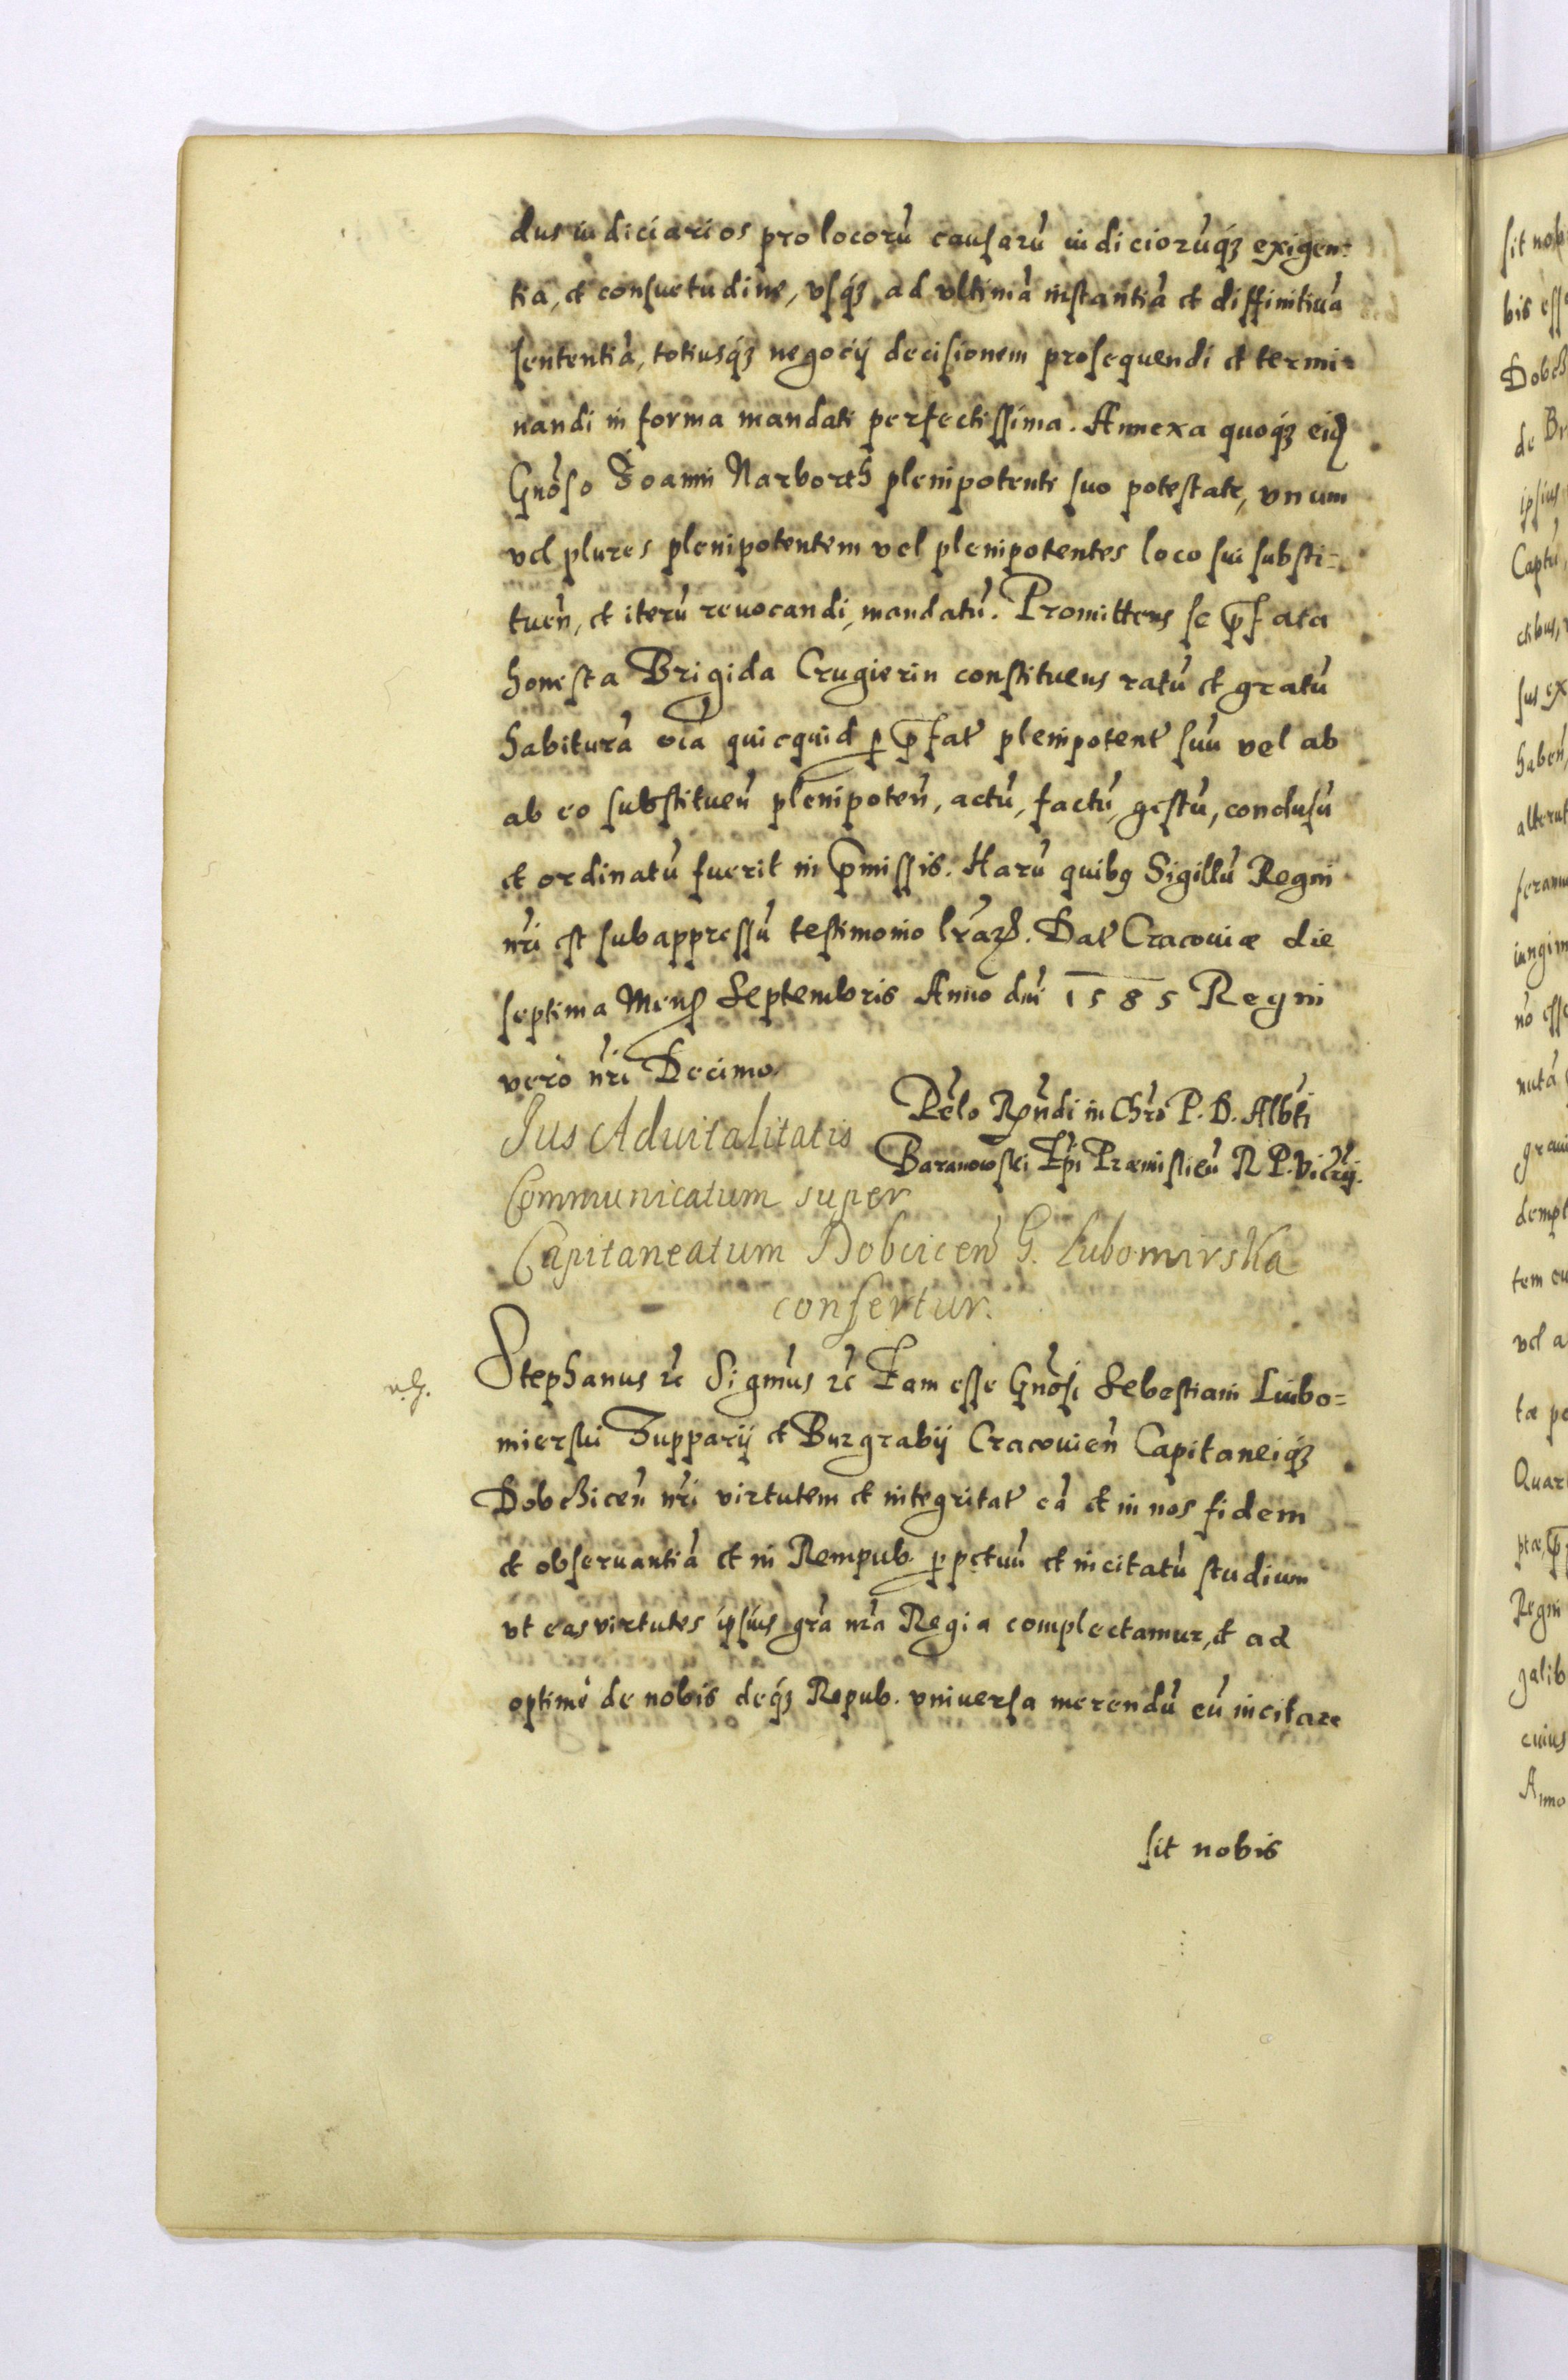 dus iudiciarios pro locorũ causarũ iudiciorũq́ꝫ exigen-
tiã, et consuetudine, vsq́ꝫ ad vltimã instantiã et diffinitiuã
sententiã, totiusq́ꝫ negocij decisionem prosequendi et termi-
nandi in forma mandati perfectissima. Annexa quoq́ꝫ eid
Gnõso Ioanni Narborth plenipotenti suo potestate, vnum
vel plures plenipotentem vel plenipotentes loco sui substi-
tueñ, et iterũ reuocandi, mandatũ. Promittens se p̃fata
honesta Brigida Crugierin constituens ratũ et gratũ
habiturã oĩa quicquid ꝑ p̃fat̃ plenipotent̃ suũ vel ab
ab eo substitueñ plenipoteñ, actũ, factũ, gestũ, conclusũ
et ordinatũ fuerit in p̃missis. Harũ quibꝯ Sigillũ Regni
nr̃i est subappressũ testimonio lr̃arꝫ. Dat̃ Cracouiæ die
septima Mens Septembris Anno dni 1585 Regni
vero nr̃i Decimo
Relo Rndi in Chro P. D. Albti
Baranowski Epi Præmislieñ R P. Vicrij.
Jus Advitalitatis
Communicatum super
Capitaneatum Dobcicen G. Lubomirska
confertur.
n.h.
Stephanus ꝛc̃ Sigmus ꝛc̃ Eam esse Gnõsi Sebestiani Luibo-
mierski Zupparij et Burgrabij Cracouieñ Capitaneiq́ꝫ
Dobchiceñ nr̃i virtutem et integritat̃ eã et in nos fidem
et obseruantiã et in Rempub. ꝑpetuũ et incitatũ studium
vt eas virtutes ipsius gr̃a nr̃a Regia complectamur, et ad
optimè de nobis deq́ꝫ Repub. vniuersa merendũ eũ incitare
sit nobis